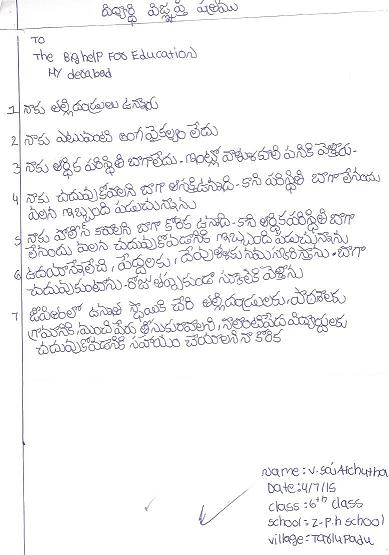 విద్యార్థి విజ్ఞప్తి పత్రము
TO
The Big help FOR Education
HY derabad
1 నాకు తల్లిదండ్రులు ఉన్నారు
2 నాకు ఎటువంటి అంగవైకల్యం లేదు
3 నాకు ఆర్థిక పరిస్థితి బాగాలేదు. ఇంట్లో పనికి వెళ్తారు.
4 నాకు చదువుకోవాలని బాగా ఆసక్తి ఉన్నది - కాని పరిస్థితి బాగా లేనందు
వలన ఇబ్బంది పడుచున్నాను
5 నాకు పోలీస్ కావాలని బాగా కోరిక ఉన్నది - కాని ఆర్థిక పరిస్థితి బాగా
లేనందు వలన చదువుకోవడానికి ఇబ్బంది పడుచున్నాను
6 ఉదయాన్నే లేచి, పెద్దలకు, దేవుళ్ళకు నమస్కరిస్తాను. బాగా
చదువుకుంటాను. రోజు తప్పకుండా స్కూలుకి వెళ్తాను
7 జీవితంలో ఉన్నత స్థాయికి చేరి తల్లిదండ్రులకు, పాఠశాలకు
గ్రామానికి, మంచి పేరు తీసుకురావాలని, నాలాంటి పేద విద్యార్థులకు
చదువుకోవడానికి సహాయం చేయాలని నా కోరిక
Name: V. Sai Atchutha
Date: 4/7/15
class: 6th class
school: Z-P.h school
village: Tarlupadu